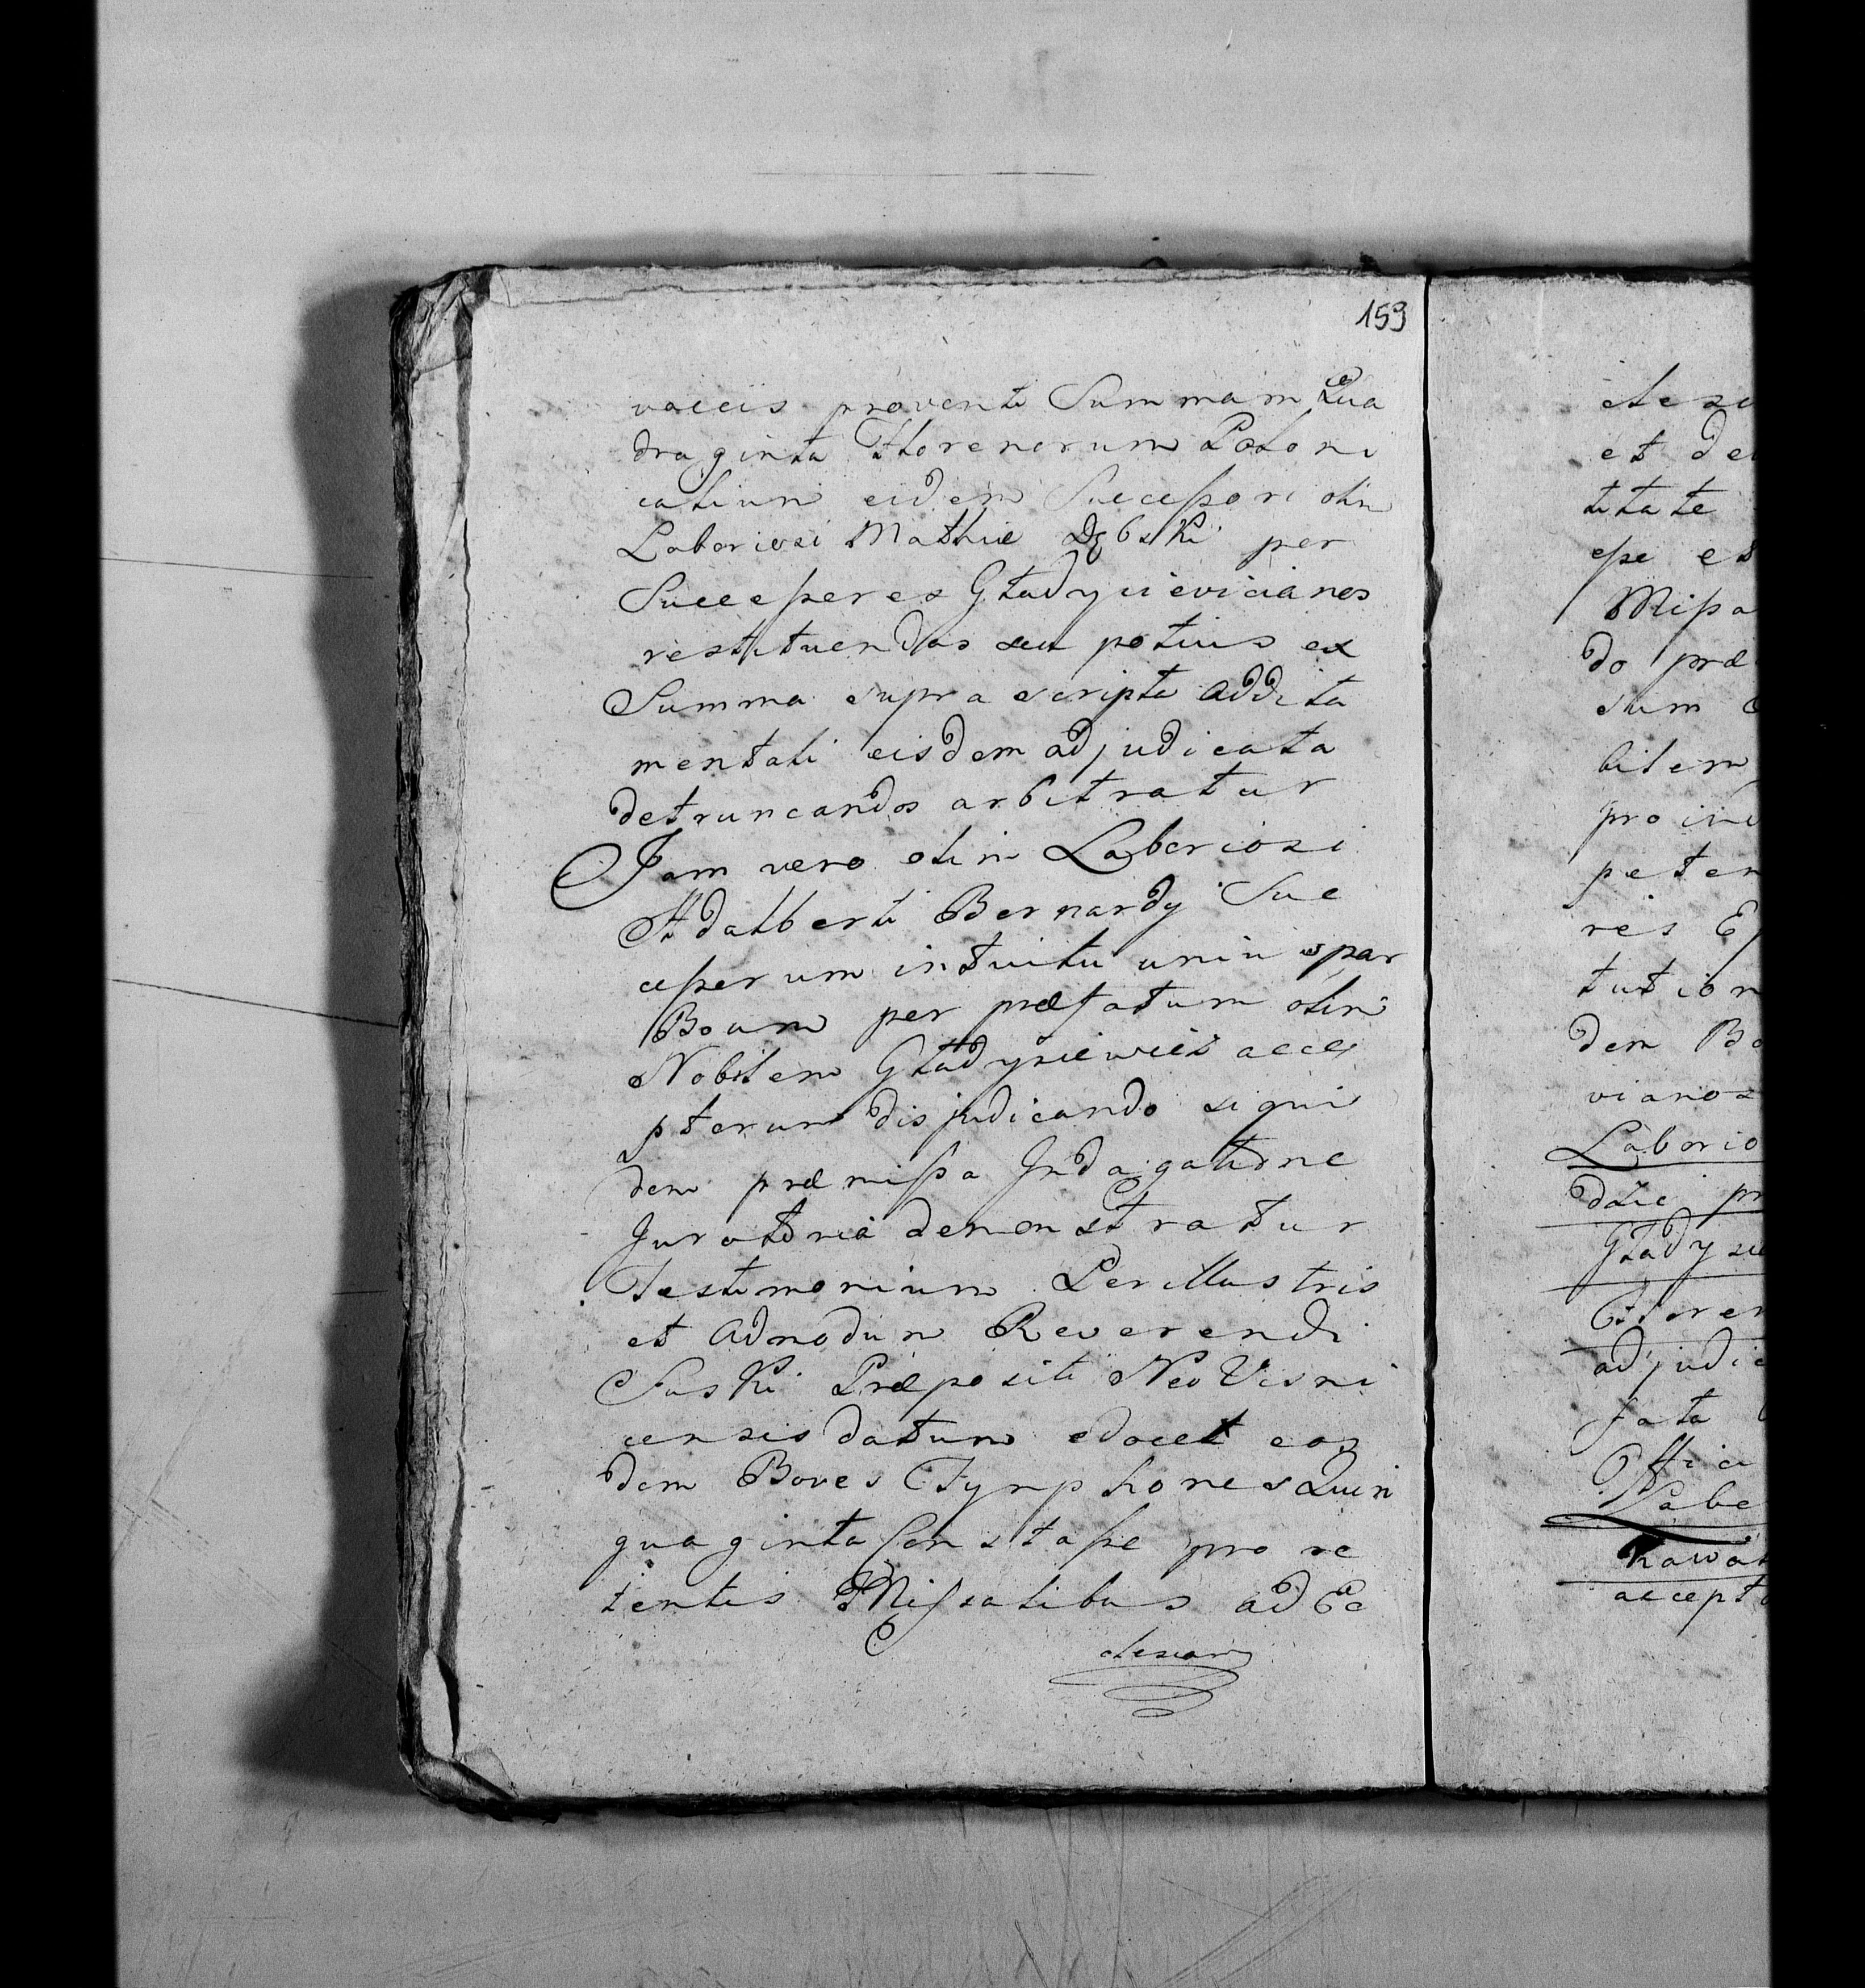 159
vaccis proventi Summam Qua
draginta Florenorum Poloni
calium eidem Successori olim
Laboriosi Mathiæ Dębski per
Successores Gładysievicianos
restituendos seu potius ex
Summa supra scripta addita
mentali eisdem adjudicata
detruncandos arbitratur
Jam vero olim Laboriosi
Adalberti Bernardy Suc
cessorum intuitu unius par
Boum per præfatum olim
Nobilem Gładysiewicz acce
ptorum disjudicando siqui
dem præmissa Indagatione
Juratoria demonstratur
Testimonium Perillustris
et Admodum Reverendi
Suski Præpositi Neo Visni
censis datum edocet eos
dem Boves Tynphones Quin
quaginta Constasse pro re
tentis Missalibus ad Ec
clesiam
clesi
et de
titate
esse es
Missa
do præ
sum
bilem
pro in
peter
res
tution
dem Bo
vianos
Laborio
dzie pr
Gładysie
Floren
adjudic
fata
Offici
Nabe
kowa
accept